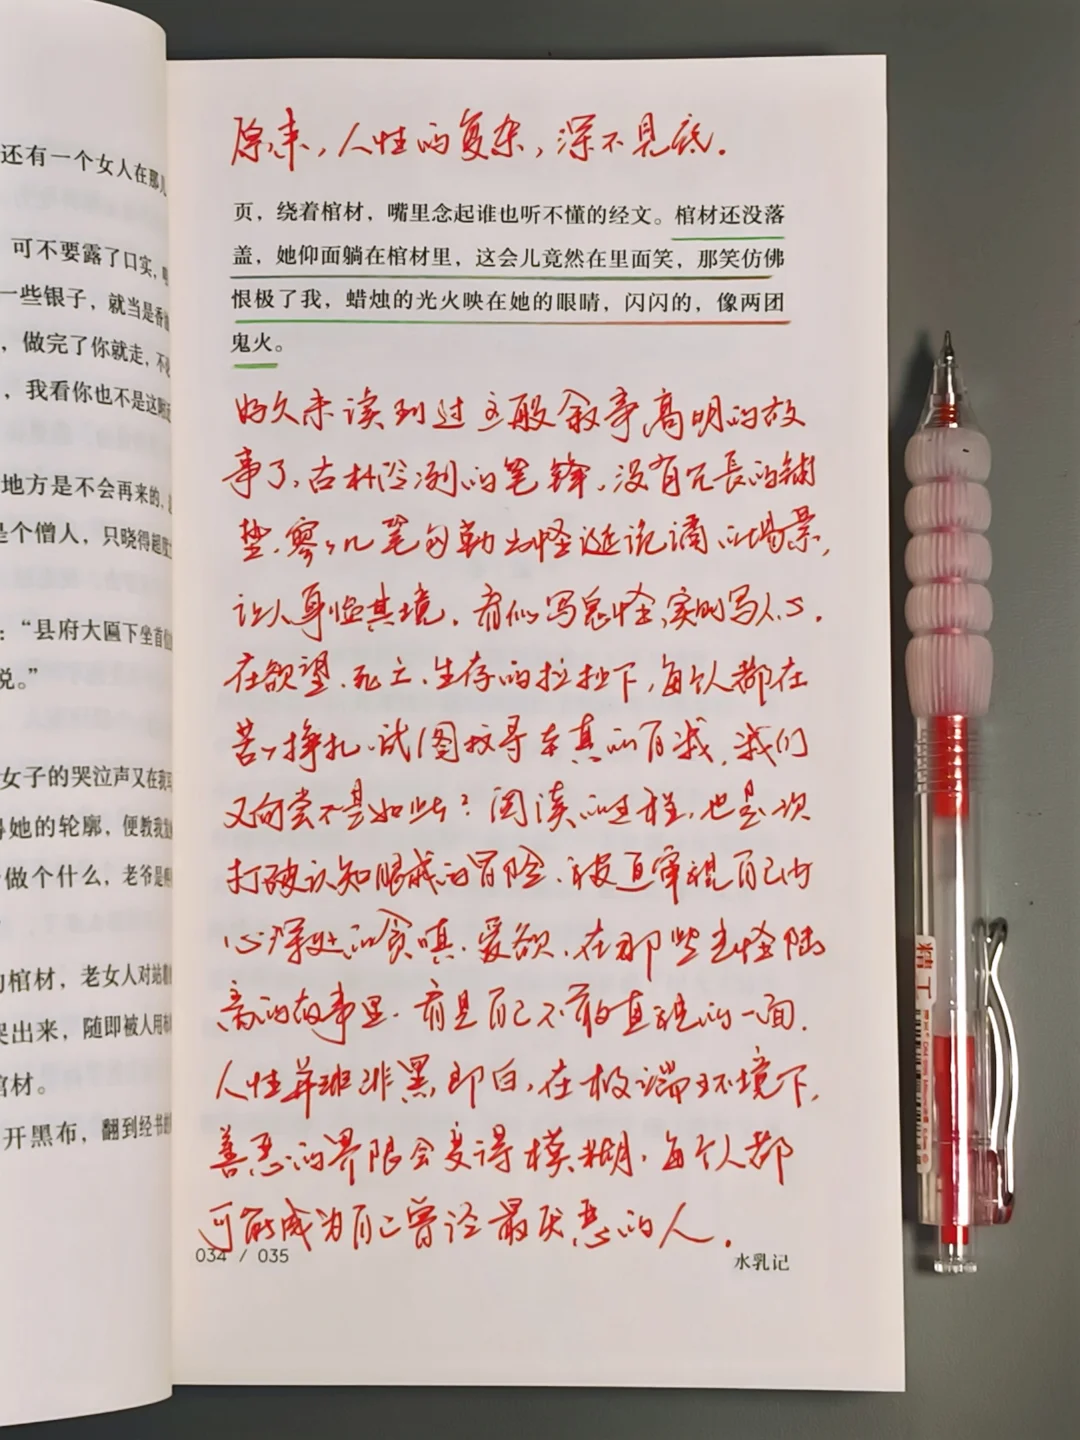 还有一个女人在那儿
可不要露了口实，
一些银子，就当是香油
，做完了你就走，不
，我看你也不是这附近
地方是不会再来的，
是个僧人，只晓得超度
：“县府大匾下坐首位
说。”
女子的哭泣声又在我耳
得她的轮廓，便教我
做个什么，老爷是
的棺材，老女人对姑
哭出来，随即被人用布
棺材。
开黑布，翻到经书的
原来，人性的复杂，深不见底。
页，绕着棺材，嘴里念起谁也听不懂的经文。棺材还没落
盖，她仰面躺在棺材里，这会儿竟然在里面笑，那笑仿佛
恨极了我，蜡烛的光火映在她的眼睛，闪闪的，像两团
鬼火。
好久未读到过这般叙事高明的故
事了，古朴冷冽的笔锋，没有冗長的铺
垫，寥寥几笔勾勒出怪诞诡谲的场景，
让人身临其境，看似写鬼怪，实则写人心。
在欲望、死亡、生存的拉扯下，每个人都在
苦苦挣扎，试图找寻本真的自我，我们
又何尝不是如此？阅读的过程，也是一次
打破认知眼界的冒险，被迫审视自己内
心深处的贪嗔、爱欲，在那些志怪陆
离的故事里，看见自己不敢直视的一面。
人性并非非黑即白，在极端环境下，
善恶的界限会变得模糊，每个人都
可能成为自己曾经最厌恶的人。
034 / 035
水乳记
精工